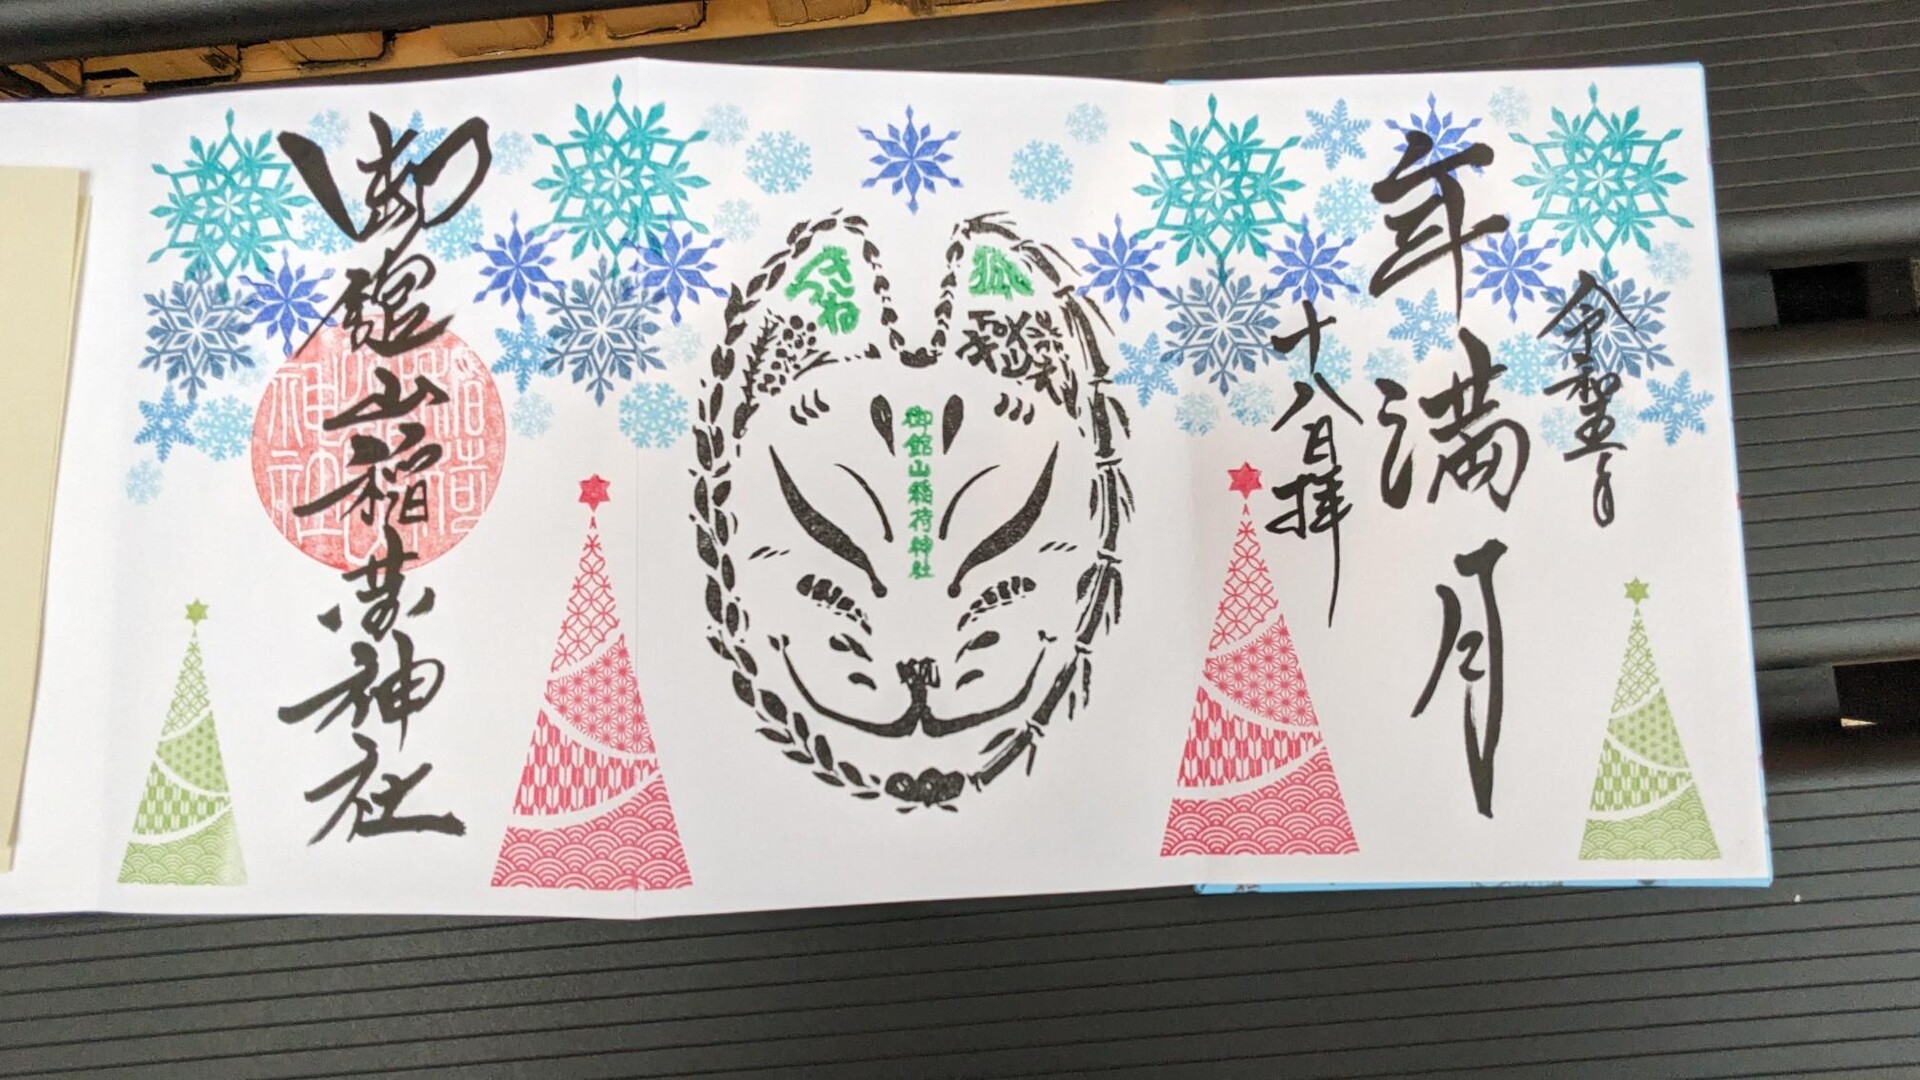 令和年
年満月
十八日拝
狐
きつね
御館山稲荷神社
御館山稲荷神社